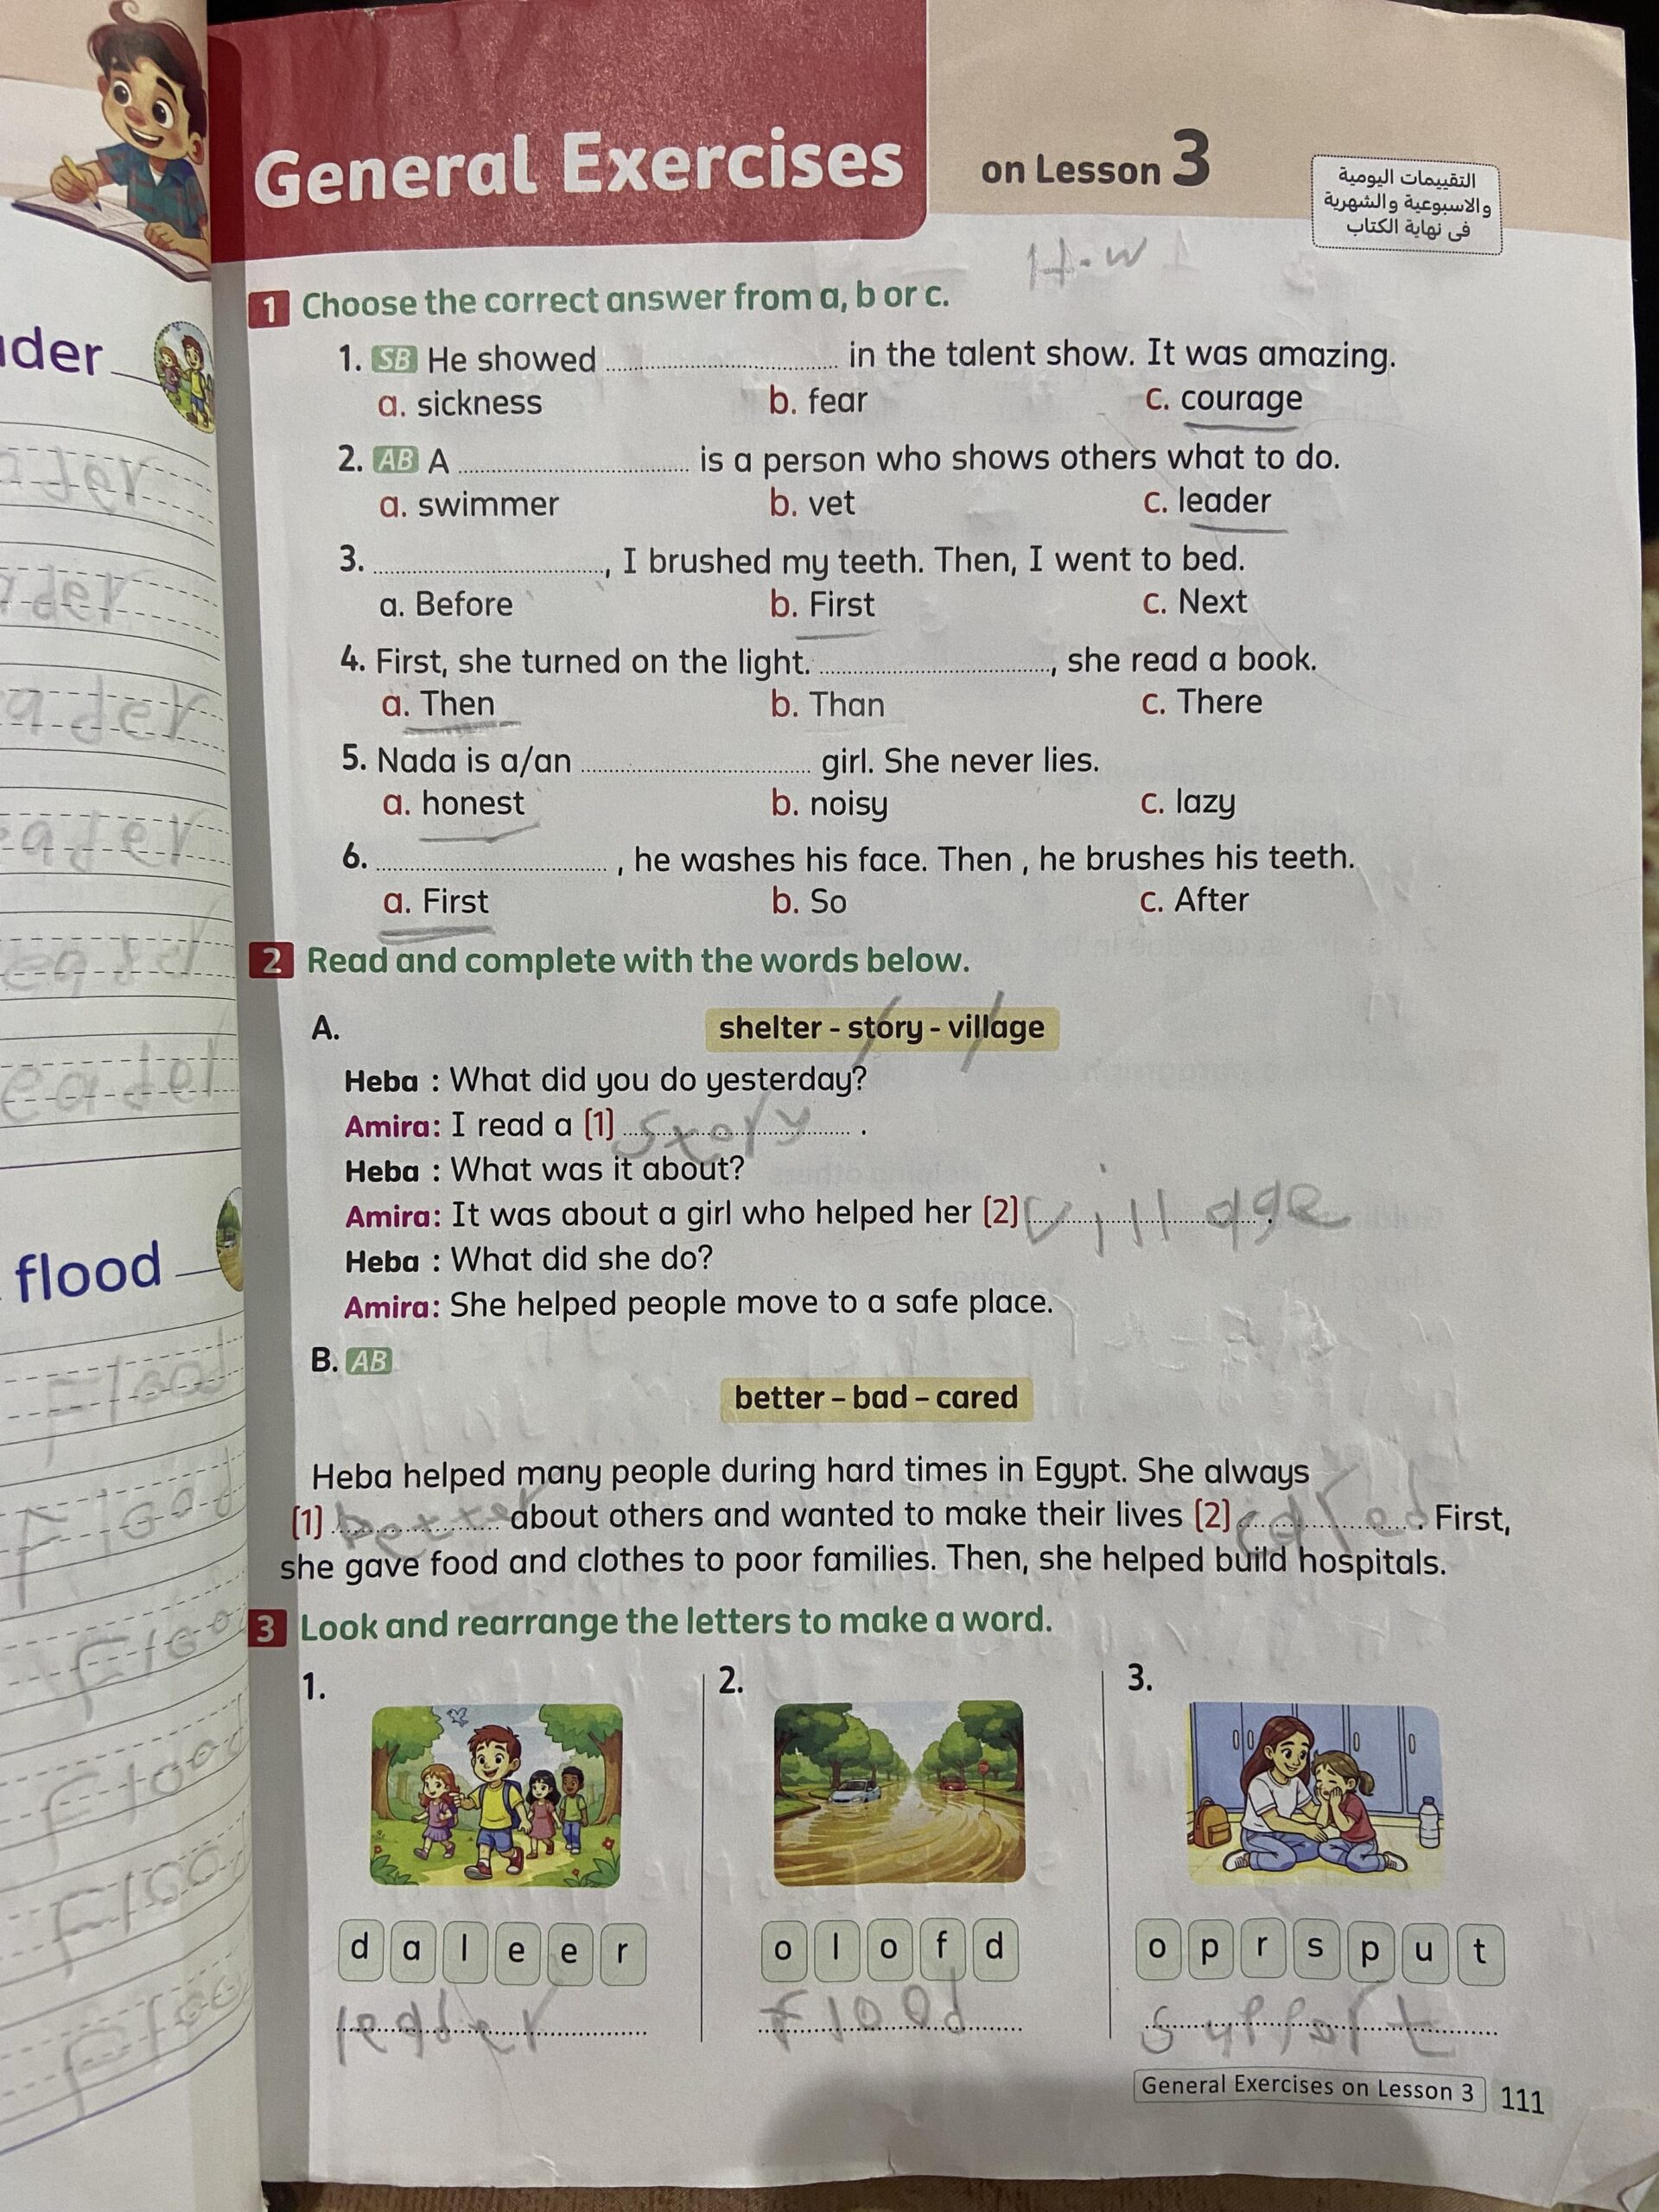 General Exercises on Lesson 3
التقييمات اليومية
والاسبوعية والشهرية
فى نهاية الكتاب
H.W
1 Choose the correct answer from a, b or c.
1. SB He showed ........ in the talent show. It was amazing.
a. sickness b. fear c. courage
2. AB A ........ is a person who shows others what to do.
a. swimmer b. vet c. leader
3. ........, I brushed my teeth. Then, I went to bed.
a. Before b. First c. Next
4. First, she turned on the light. ........, she read a book.
a. Then b. Than c. There
5. Nada is a/an ........ girl. She never lies.
a. honest b. noisy c. lazy
6. ........ , he washes his face. Then , he brushes his teeth.
a. First b. So c. After
2 Read and complete with the words below.
A.
shelter - story - village
Heba : What did you do yesterday?
Amira: I read a (1) story .
Heba : What was it about?
Amira: It was about a girl who helped her (2) village .
Heba : What did she do?
Amira: She helped people move to a safe place.
B. AB
better – bad – cared
Heba helped many people during hard times in Egypt. She always
(1) better about others and wanted to make their lives (2) cared . First,
she gave food and clothes to poor families. Then, she helped build hospitals.
3 Look and rearrange the letters to make a word.
1. 2. 3.
d a l e e r o l o f d o p r s p u t
leader Flood support
General Exercises on Lesson 3 111
der
ader
ader
ader
eader
eader
eader
flood
Flood
Flood
Floo
Flood
Floo
Floo